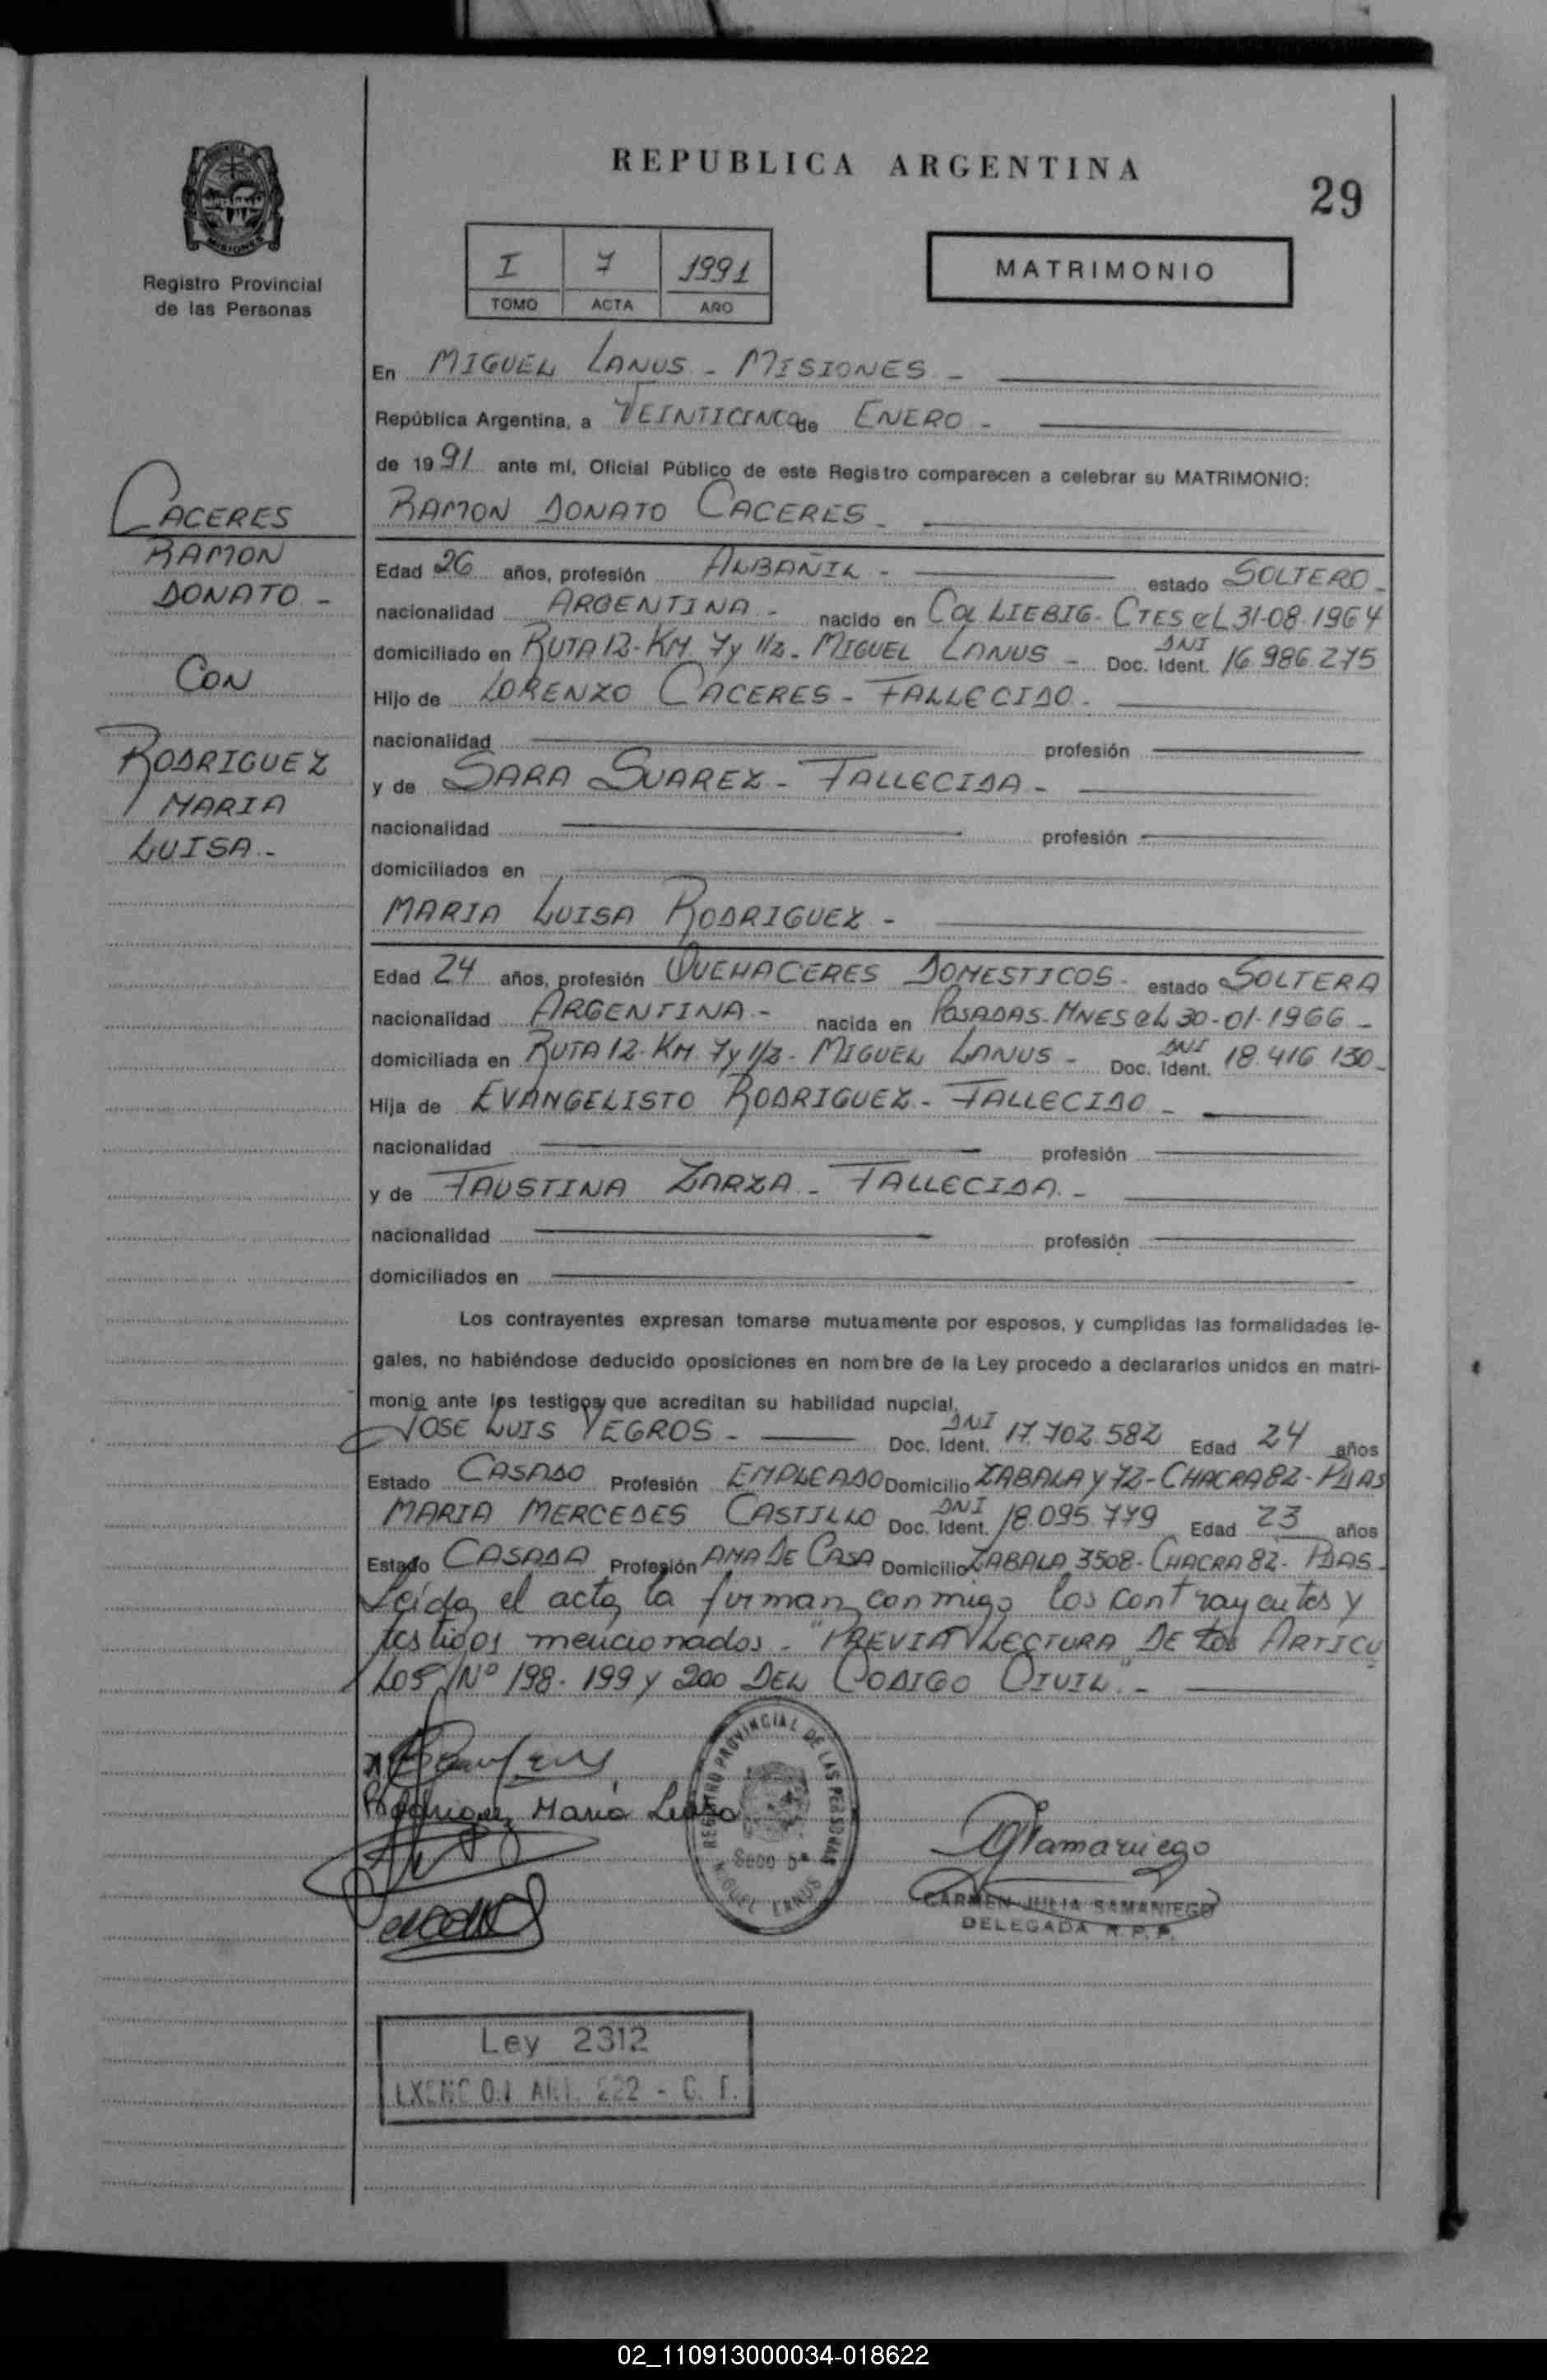 REPUBLICA ARGENTINA
29
Registro Provincial
de las Personas
I 7 1991
TOMO ACTA AÑO
MATRIMONIO
En MIGUEL LANUS - MISIONES -
República Argentina, a VEINTICINCO de ENERO -
de 1991 ante mí, Oficial Público de este Registro comparecen a celebrar su MATRIMONIO:
CACERES
RAMON
DONATO -
CON
RODRIGUEZ
MARIA
LUISA -
RAMON DONATO CACERES -
Edad 26 años, profesión ALBAÑIL - estado SOLTERO -
nacionalidad ARGENTINA - nacido en COL LIEBIG - CTES el 31-08-1964
domiciliado en RUTA 12 - KM 7 y 1/2 - MIGUEL LANUS - Doc. Ident. DNI 16.986.275
Hijo de LORENZO CACERES - FALLECIDO -
nacionalidad profesión
y de SARA SUAREZ - FALLECIDA -
nacionalidad profesión
domiciliados en
MARIA LUISA RODRIGUEZ -
Edad 24 años, profesión QUEHACERES DOMESTICOS - estado SOLTERA
nacionalidad ARGENTINA - nacida en POSADAS - MNES el 30-01-1966 -
domiciliada en RUTA 12 - KM 7 y 1/2 - MIGUEL LANUS - Doc. Ident. DNI 18.416.130 -
Hija de EVANGELISTO RODRIGUEZ - FALLECIDO -
nacionalidad profesión
y de FAUSTINA ZARZA - FALLECIDA -
nacionalidad profesión
domiciliados en
Los contrayentes expresan tomarse mutuamente por esposos, y cumplidas las formalidades le-
gales, no habiéndose deducido oposiciones en nombre de la Ley procedo a declararlos unidos en matri-
monio ante los testigos que acreditan su habilidad nupcial.
JOSE LUIS YEGROS - Doc. Ident. DNI 17.702.582 Edad 24 años
Estado CASADO Profesión EMPLEADO Domicilio ZABALA Y 72 - CHACRA 82 - PDAS
MARIA MERCEDES CASTILLO Doc. Ident. DNI 18.095.779 Edad 23 años
Estado CASADA Profesión AMA DE CASA Domicilio ZABALA 3508 - CHACRA 82 - PDAS -
Leída el acta, la firman conmigo los contrayentes y
testigos mencionados - "PREVIA LECTURA DE LOS ARTICU
LOS Nº 198 - 199 y 200 DEL CODIGO CIVIL" -
Rodriguez Maria Luisa
REGISTRO PROVINCIAL DE LAS PERSONAS
MIGUEL LANUS
CARMEN JULIA SAMANIEGO
DELEGADA R. P. P.
Ley 2312
ART. 222 -
02_110913000034-018622